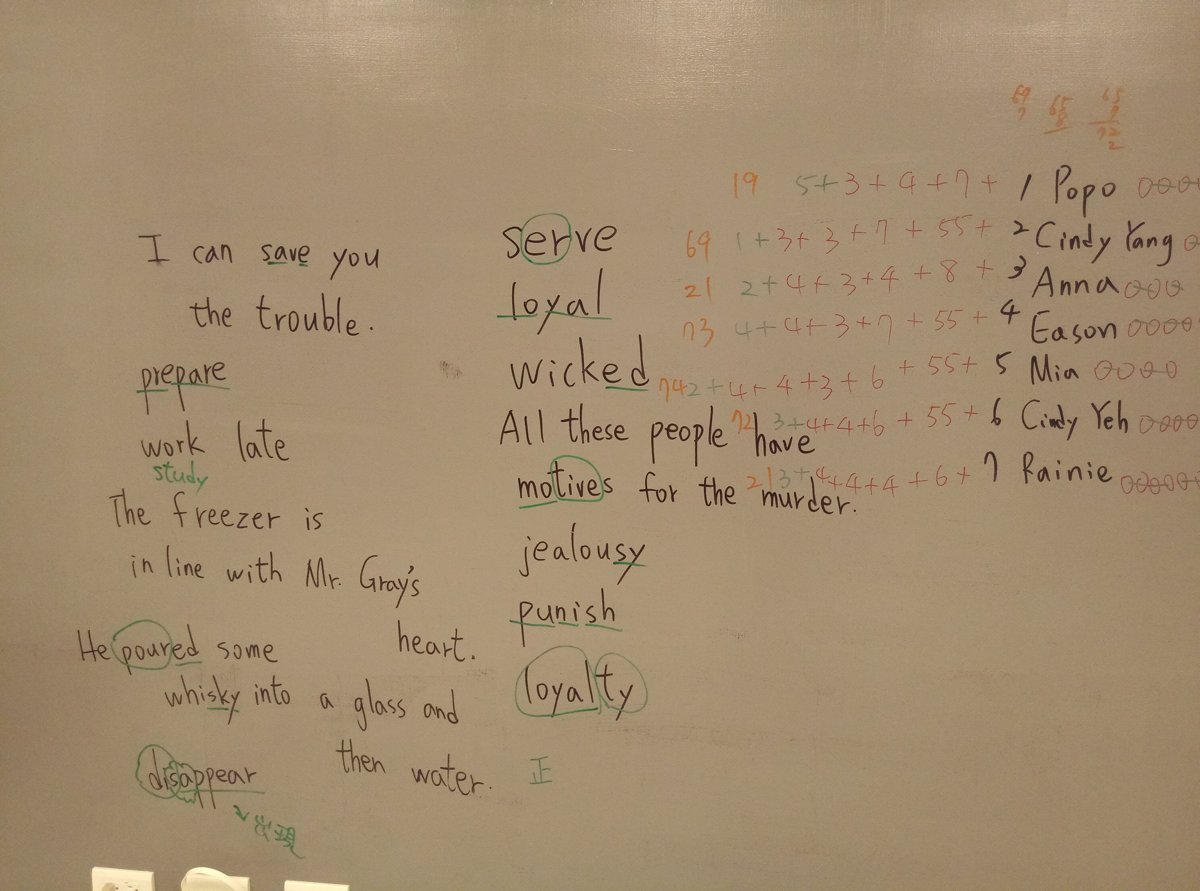 I can save you
the trouble.
prepare
work late
study
The freezer is
in line with Mr. Gray's
heart.
He poured some
whisky into a glass and
then water.
disappear
serve
loyal
wicked
All these people have
motives for the murder.
jealousy
punish
loyalty
正
69
7
65
8
65
9
72
2
19 5+3+4+7+ 1 Popo
69 1+3+3+7+55+ 2 Cindy Yang
21 2+4+3+4+8+ 3 Anna
73 4+4+3+7+55+ 4 Eason
74 2+4+4+3+6+55+ 5 Mia
72 3+4+4+6+55+ 6 Cindy Yeh
21 3+4+4+4+6+ 7 Rainie